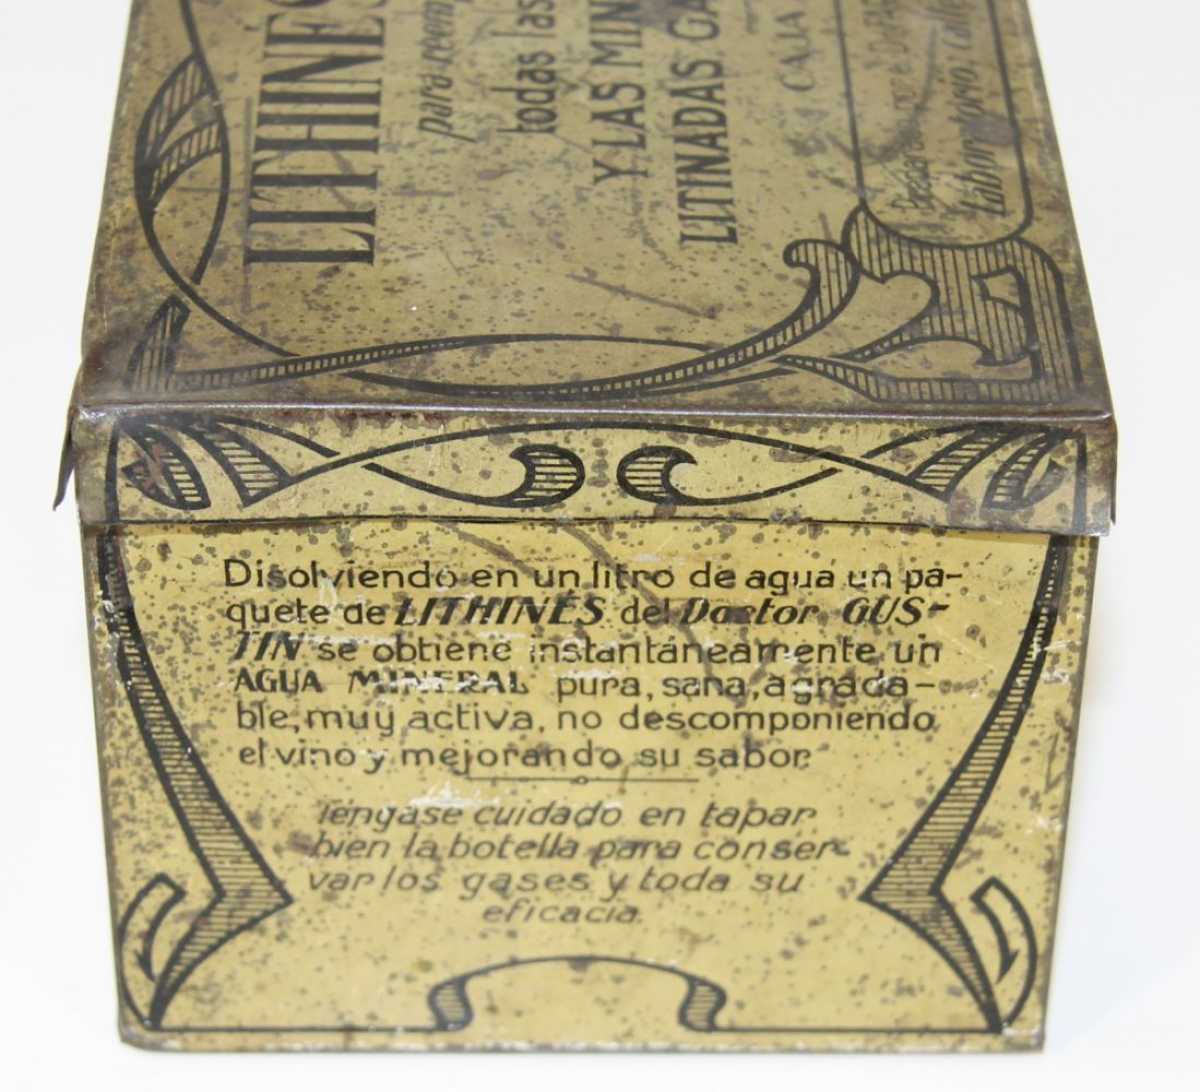 LITHINÉS
para
todas las
Y LAS MIN
LITINADAS GA
CAJA
Laboratorio, calle
Disolviendo en un litro de agua un pa-
quete de LITHINÉS del Doctor GUS-
TIN se obtiene instantáneamente un
AGUA MINERAL pura, sana, agrada-
ble, muy activa, no descomponiendo
el vino y mejorando su sabor.
Téngase cuidado en tapar
bien la botella para conser-
var los gases y toda su
eficacia.